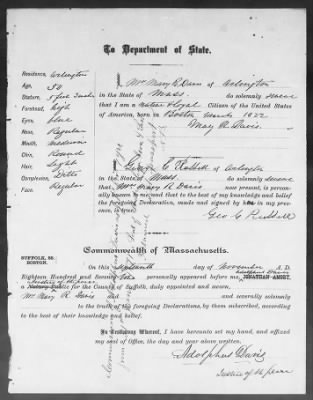 To Department of State.
Residence, Arlington
Age, 50
Stature, 5 feet
Forehead, high
Eyes, blue
Nose, Regular
Mouth, medium
Chin, Round
Hair, Light
Complexion, Ditto
Face, Regular
I, Mrs Mary R. Davis of Arlington
in the State of Mass. do solemnly
that I am a Native & loyal Citizen of the United States of
America, born in Boston March 1822
Mary R. Davis.
I, George C. Russell of Arlington
in the State of Mass. do solemnly
that Mrs Mary R Davis now present, is personally
known to me, and that to the best of my knowledge and belief
the foregoing Declaration, made and signed by her is true.
Geo C Russell
Commonwealth of Massachusetts.
SUFFOLK, SS.
BOSTON.
On this day of November A. D.
Eighteen Hundred and seventy two personally appeared before me, Adolphus Davis JONATHAN AMORY,
Justice of the peace
a Notary Public for the County of Suffolk, duly appointed and sworn,
Mrs Mary R. Davis and severally solemnly
to the truth of the foregoing Declarations, by them subscribed, according
to the best of their knowledge and belief.
In Testimony Whereof, I have hereunto set my hand, and affixed
my seal of Office, the day and year above written.
Adolphus Davis
Justice of the peace